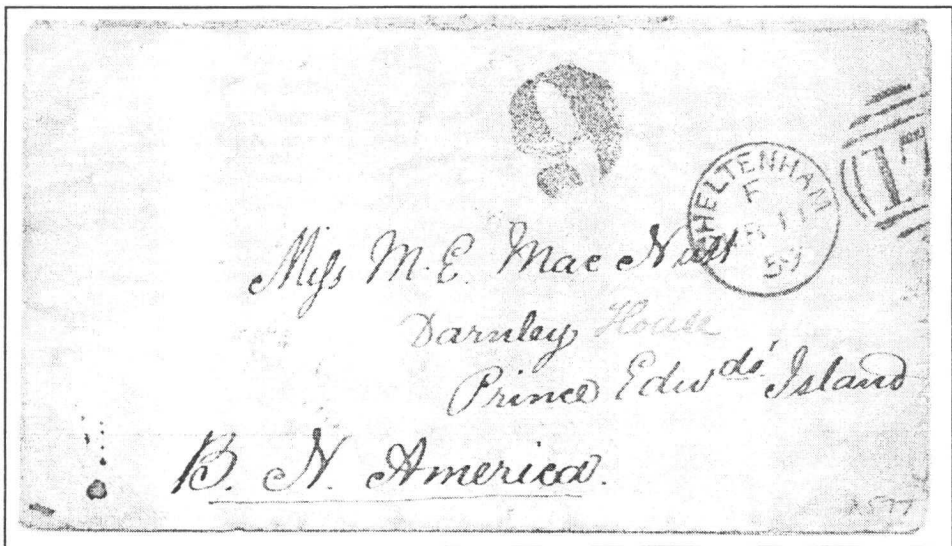 9
CHELTENHAM
F
11
59
Miss M. E. Mac Nutt
Darnley House
Prince Edwds' Island
B. N. America.